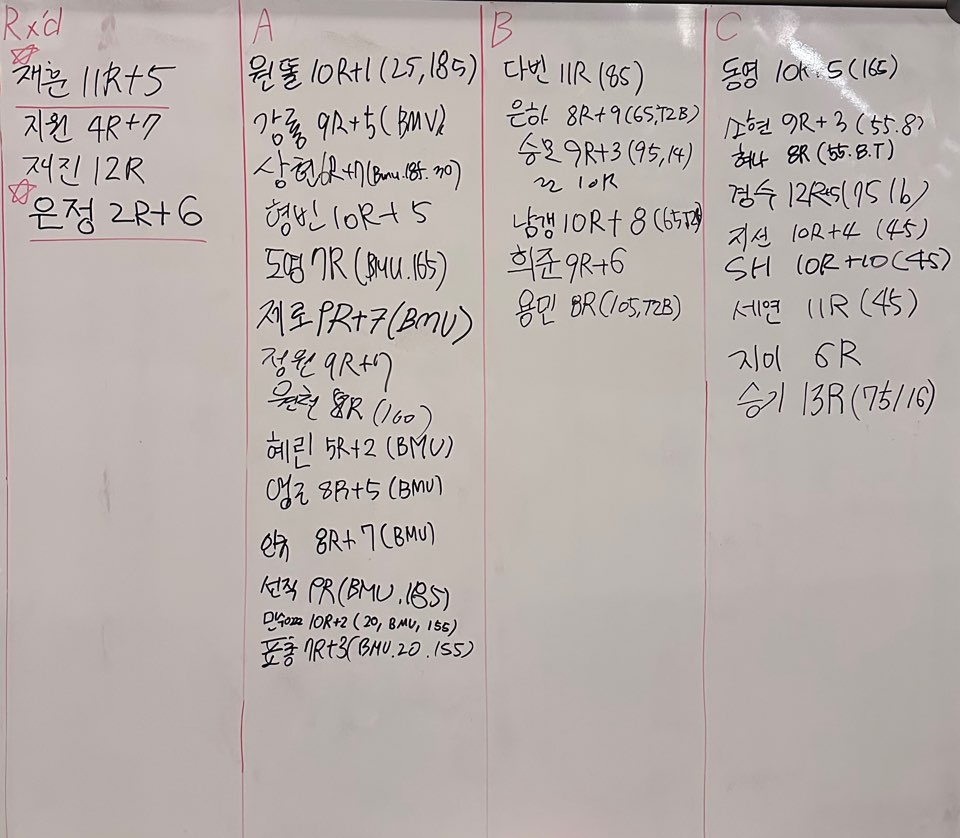 Rx'd
재훈 11R+5
지원 4R+7
재진 12R
은정 2R+6
A
원똘 10R+1 (25, 185)
강룡 9R+5 (BMU)
상현 R+7 (Bmu. 185. 30)
형빈 10R+5
도영 7R (BMU. 165)
제로 9R+7 (BMU)
정원 9R+7
8R (160)
혜린 5R+2 (BMU)
8R+5 (BMU)
8R+7 (BMU)
선직 9R (BMU. 185)
10R+2 (20, BMU, 155)
표총 7R+3 (BMU. 20. 155)
B
다빈 11R (85)
은하 8R+9 (65, T2B)
9R+3 (95, 14)
10R
남갱 10R+8 (65
희준 9R+6
용민 8R (105, T2B)
C
동영 10R 5 (165)
소현 9R+3 (55. 8)
혜나 8R (55. 8. T)
경수 12R+5 (75 16)
지선 10R+4 (45)
SH 10R+10 (45)
세연 11R (45)
지이 6R
승기 13R (75/16)